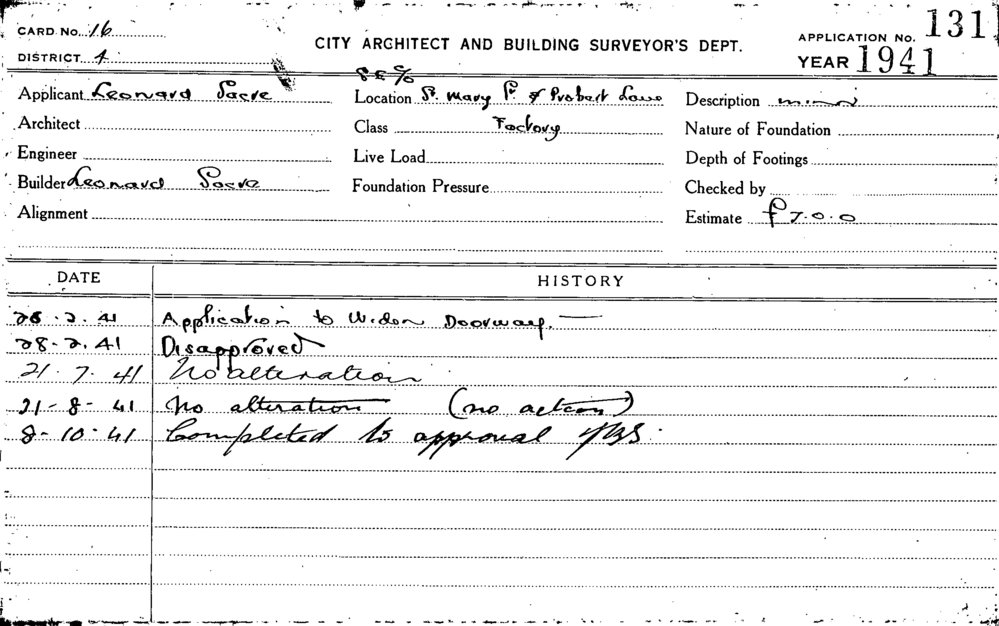 CARD No. 16
DISTRICT 4
CITY ARCHITECT AND BUILDING SURVEYOR'S DEPT.
APPLICATION No. 131
YEAR 1941
Applicant Leonard Sacre
Architect
Engineer
Builder Leonard Sacre
Alignment
S.E. C/o
Location St. Mary St. & Probert Lane
Class Factory
Live Load
Foundation Pressure
Description minor
Nature of Foundation
Depth of Footings
Checked by
Estimate £7.0.0
DATE HISTORY
.2.41 Application to Widen Doorway. —
28.2.41 Disapproved
21.7.41 No alteration
21-8-41 No alteration (no action)
8-10-41 Completed to approval